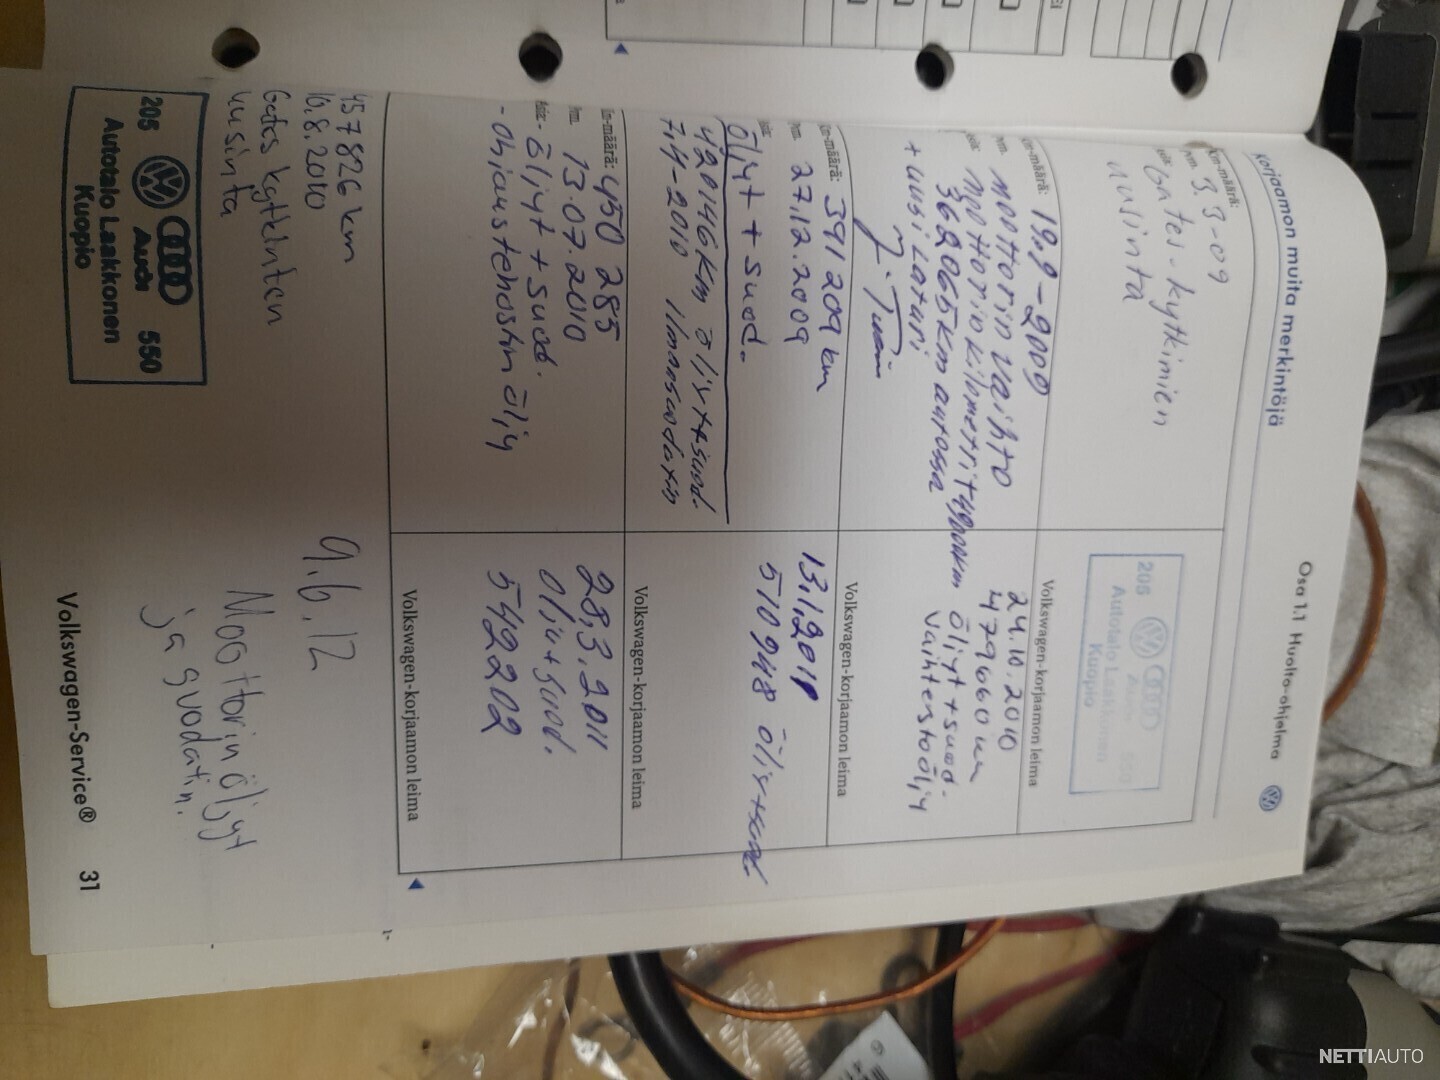 Osa 1.1 Huolto-ohjelma
Korjaamon muita merkintöjä
Km-määrä:
Pvm. 3.3-09
Gates-kytkimien
uusinta
205 Audi 550
Autotalo Laakkonen
Kuopio
Km-määrä: 19.9-2009
Pvm. moottorin vaihto
moottorin kilometrit
362065km autossa
+ uusi laturi
Volkswagen-korjaamon leima
24.10.2010
479660 km
öljyt+suod.
vaihteistoöljy
Km-määrä: 391 209 km
Pvm. 27.12.2009
öljyt + suod.
Volkswagen-korjaamon leima
13.1.2011
510948 öljy+suod
420146km öljyt+suod.
7.4-2010 ilmasuodatin
Km-määrä: 450 285
Pvm. 13.07.2010
- öljyt + suod.
- ohjaustehostin öljy
Volkswagen-korjaamon leima
28.3.2011
öljy+suod.
542202
Volkswagen-korjaamon leima
457826 km
10.8.2010
Gates kytkeinten
uusinta
205 Audi 550
Autotalo Laakkonen
Kuopio
9.6.12
Moottorin öljyt
ja suodatin.
Volkswagen-Service® 31
NETTIAUTO